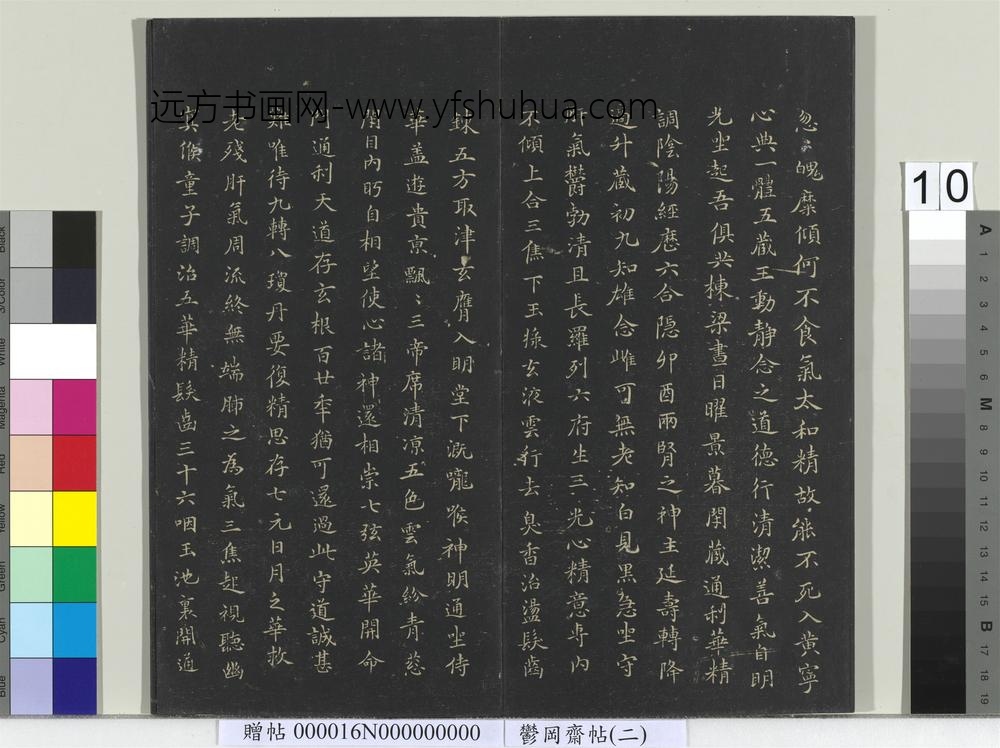 远方书画网-www.yfshuhua.com
忽〻魄糜傾何不食氣太和精故能不死入黃寧
心典一體五藏王動靜念之道德行清潔善氣自明
光坐起吾俱共棟梁晝日曜景暮閉藏通利華精
調陰陽經歷六合隱卯酉兩腎之神主延壽轉降
適升藏初九知雄念雌可無老知白見黑急坐守
肝氣欝勃清且長羅列六府生三光心精意專內
不傾上合三焦下玉漿玄液雲行去臭香治盪髮齒
錬五方取津玄膺入明堂下溉嚨喉神明通坐侍
華蓋遊貴京飄〻三帝席清凉五色雲氣紛青葱
閉目內眄自相望使心諸神還相崇七弦英華開命
門通利天道存玄根百廿年猶可還過此守道誠甚
難唯待九轉八瓊丹要復精思存七元日月之華救
老殘肝氣周流終無端肺之為氣三焦起視聽幽
冥候童子調治五華精髮齒三十六咽玉池裏開通
10
A
1
2
3
4
5
6
M
8
9
10
11
12
13
14
15
B
17
18
19
Black
3/Color
White
Magenta
Red
Yellow
Green
Cyan
Blue
贈帖 000016N000000000
鬱岡齋帖(二)